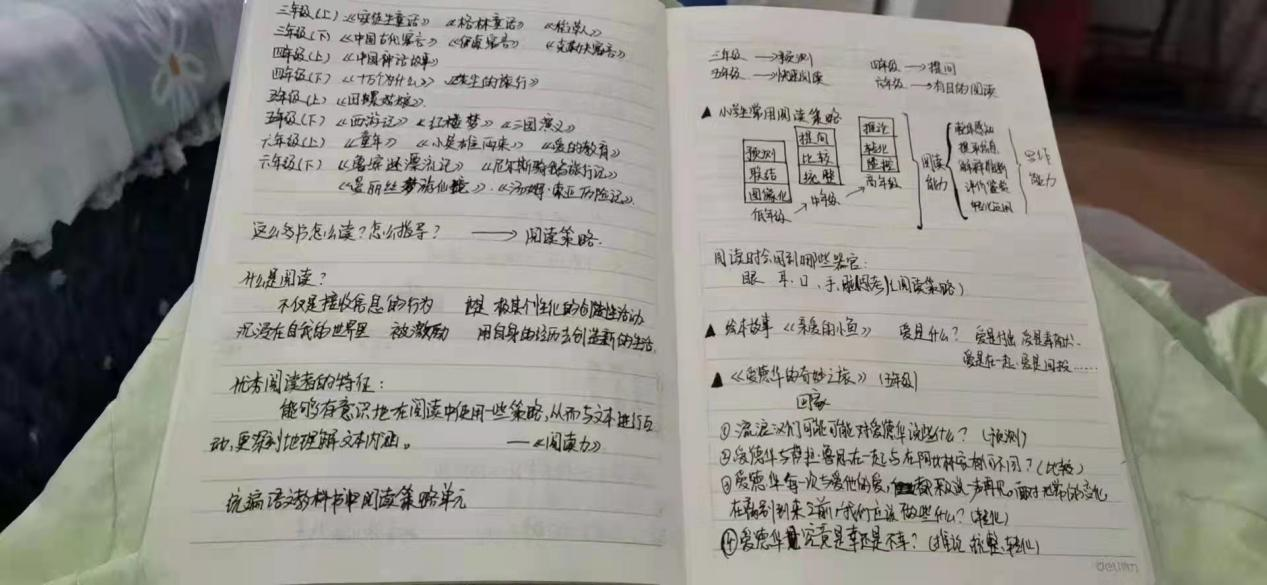 三年级(上)《安徒生童话》 《格林童话》 《稻草人》
三年级(下)《中国古代寓言》《伊索寓言》 《克雷洛夫寓言》
四年级(上)《中国神话故事》
四年级(下)《十万个为什么》
五年级(上)《田螺姑娘》
五年级(下)《西游记》《红楼梦》《三国演义》
六年级(上)《童年》 《小英雄雨来》 《爱的教育》
六年级(下)《鲁滨逊漂流记》《尼尔斯骑鹅旅行记》
《爱丽丝梦游仙境》、《汤姆·索亚历险记》
这么多书怎么读?怎么指导? → 阅读策略.
什么是阅读?
不仅是接收信息的行为 极其个性化的创造性活动
沉浸在自我的世界里 被激励 用自身的经历去创造新的生活.
优秀阅读者的特征:
能够有意识地在阅读中使用一些策略,从而与文本进行互
动,更深刻地理解文本内涵。 —《阅读力》
统编语文教科书中阅读策略单元
三年级 → 预测 四年级 → 提问
五年级 → 快速阅读 六年级 → 有目的阅读
▲ 小学生常用阅读策略
预测
联结
图像化
低年级
提问
比较
统整
中年级
推论
转化
高年级
阅读能力
提取信息
评价鉴赏
能力
阅读时会用到哪些器官:
眼、耳、口、手、脑思考(阅读策略)
▲ 绘本故事《亲爱的小鱼》 爱是什么? 爱是付出
爱是在一起、爱是回报……
▲《爱德华的奇妙之旅》
回家
① 流浪汉们可能对爱德华说些什么?(预测)
② 爱德华与萨拉·鲁思在一起与在阿比林家有何不同?(比较)
③ 爱德华每一次与爱他的人
在离别到来之前,我们应该做些什么?(转化)
④ 爱德华究竟是幸还是不幸?(推论 统整、转化)
deli